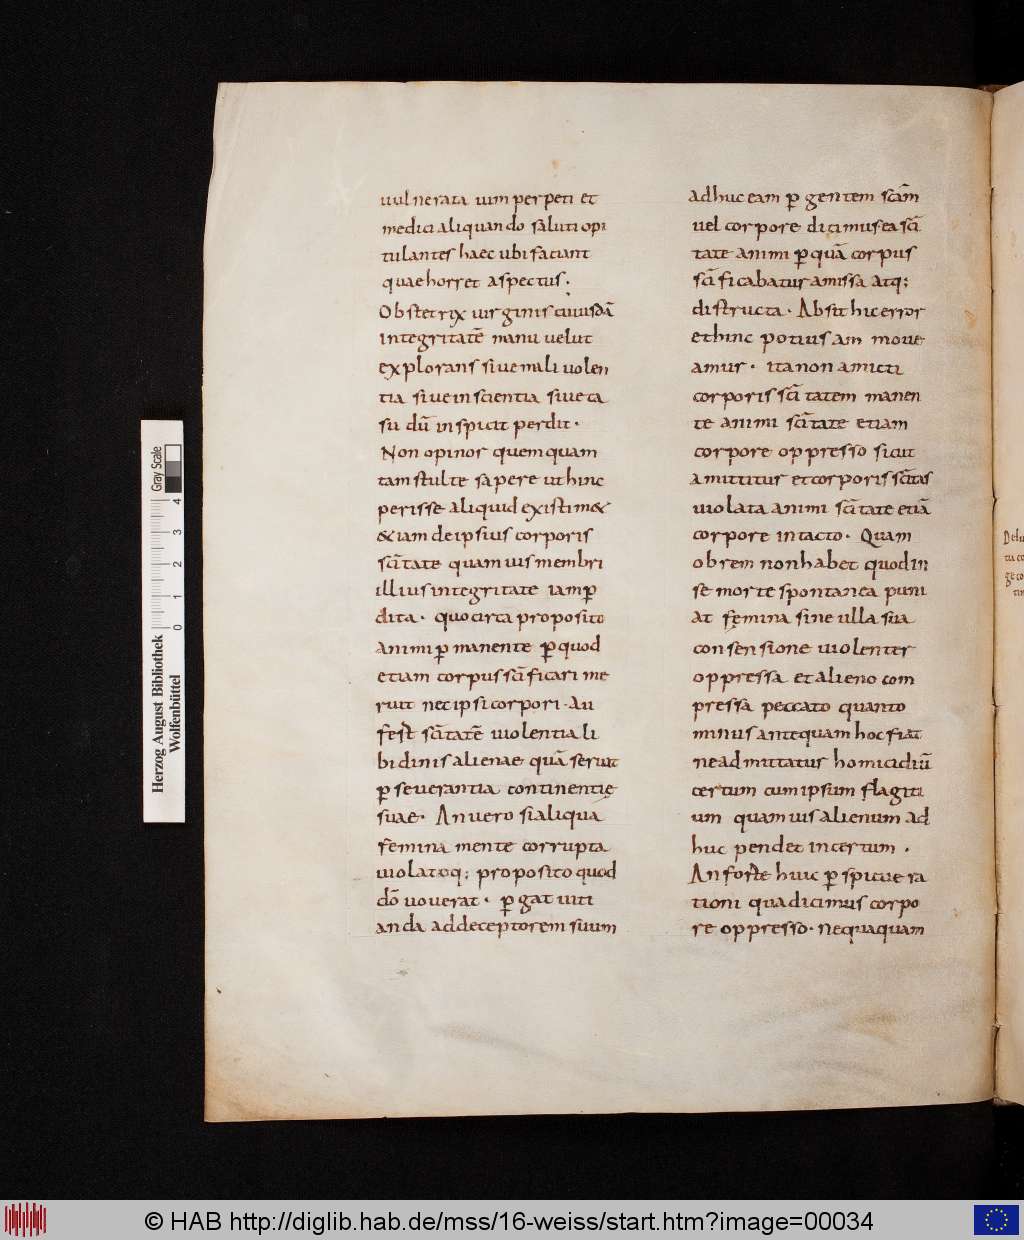 uulnerata uim perpeti et
medici aliquando saluti opi
tulantes haec ubi faciant
quae horret aspectus.
Obstetrix uirginis cuiusdā
integritatē manu uelut
explorans siue mali uolen
tia siue inscientia siue ca
su dū inspicit perdit.
Non opinor quemquam
tam stulte sapere ut hinc
perisse aliquid existim&
&iam de ipsius corporis
sc̄itate quamuis membri
illius integritate iam ꝑ
dita. quocirca proposito
animi ꝑmanente ꝑ quod
etiam corpus sc̄ificari me
ruit nec ipsi corpori. Au
fert sc̄itatē uiolentia li
bidinis alienae quā seruat
ꝑseuerantia continentię
suae. An uero si aliqua
femina mente corrupta
uiolatoq; proposito quod
dō uouerat. ꝑgat uiti
anda ad deceptorem suum
adhuc eam ꝑgentem sc̄am
uel corpore dicimus ea sc̄i
tate animi ꝑ quā corpus
sc̄ificabatur amissa atq;
distructa. Absit hic error
et hinc potius am moue
amur. ita non amicti
corporis sc̄itatem manen
te animi sc̄itate etiam
corpore oppresso sicut
amittitur et corporis sc̄itas
uiolata animi sc̄itate etiā
corpore intacto. Quam
obrem non habet quod in
se morte spontanea puni
at femina sine ulla sua
consensione uiolenter
oppressa et alieno com
pressa peccato quanto
minus antequam hoc fiat
ne admittatur homicidiū
certum cum ipsum flagiti
um quamuis alienum ad
huc pendet incertum.
An forte huic ꝑspicue ra
tioni qua dicimus corpo
re oppresso. nequaquam
Herzog August Bibliothek
Wolfenbüttel
0 1 2 3 4
Gray Scale
© HAB http://diglib.hab.de/mss/16-weiss/start.htm?image=00034